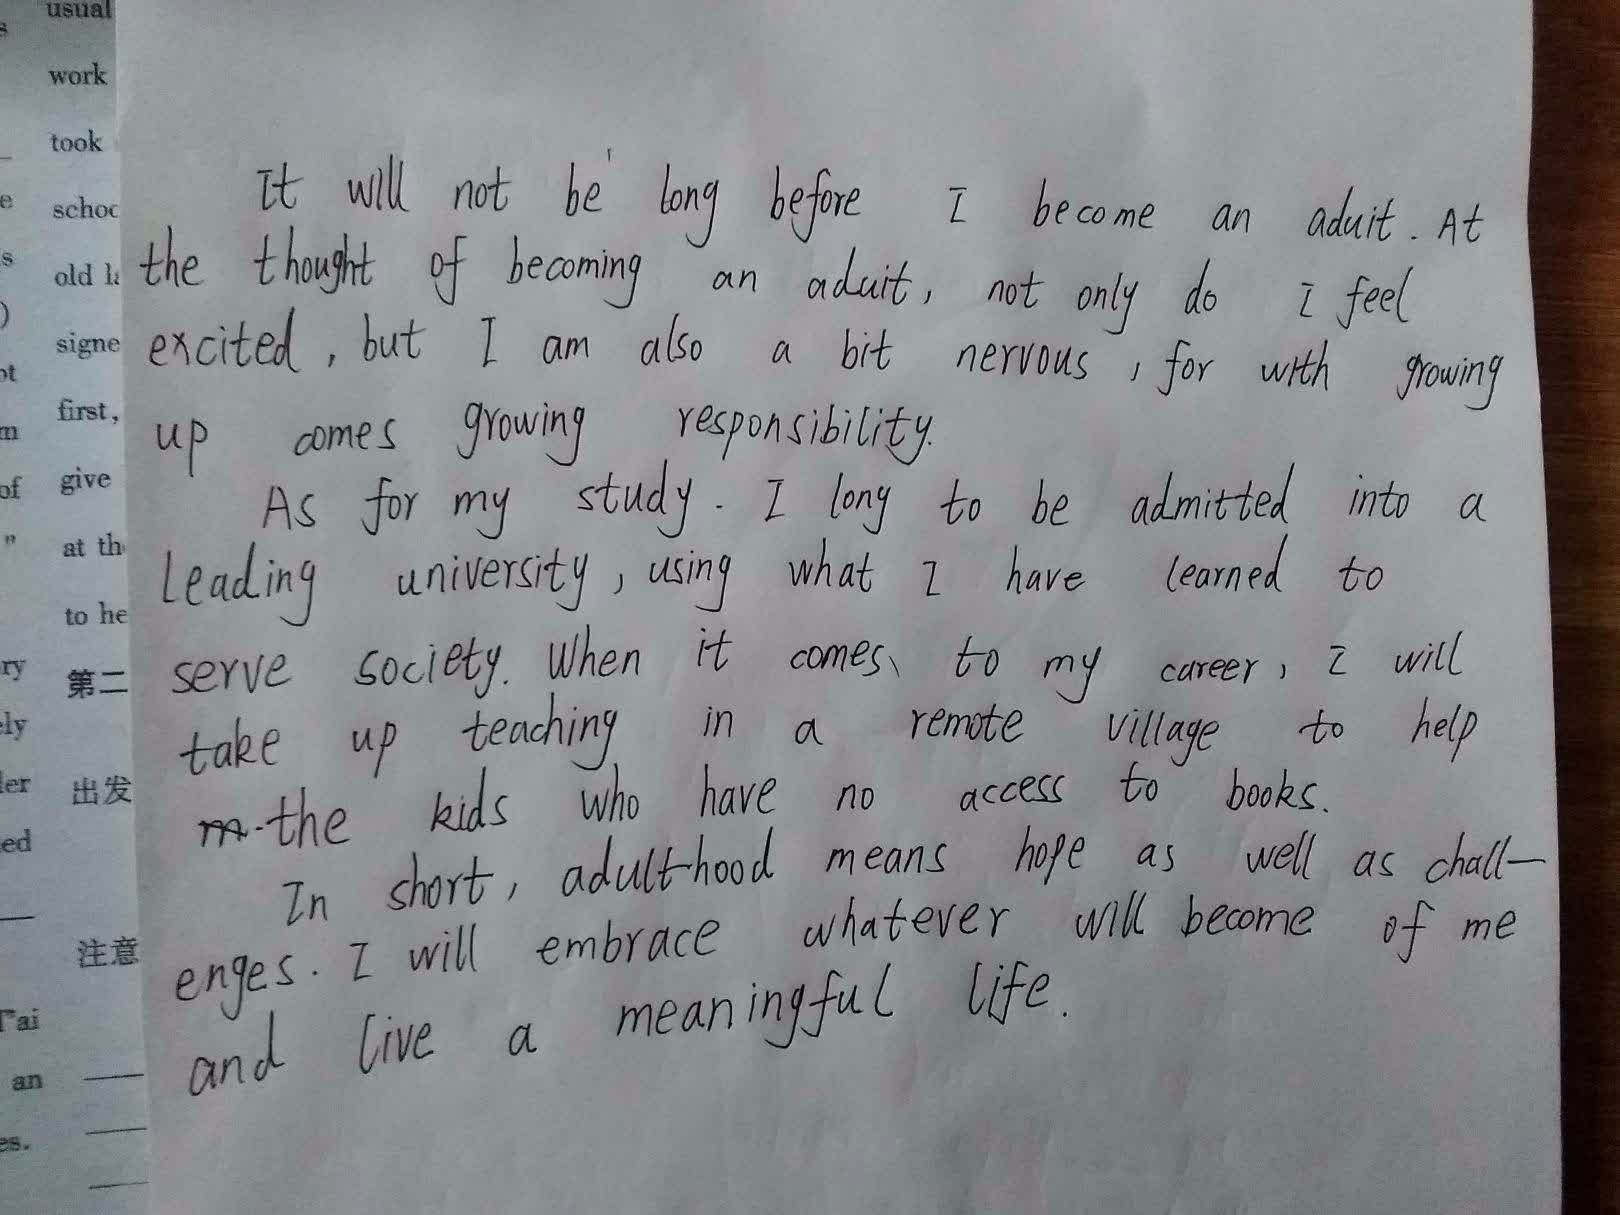 usual
work
took
schoc
old la
signe
first,
give
at th
to he
第二
出发
注意
It will not be long before I become an aduit. At
the thought of becoming an aduit, not only do I feel
excited, but I am also a bit nervous, for with growing
up comes growing responsibility.
As for my study. I long to be admitted into a
leading university, using what I have learned to
serve society. When it comes to my career, I will
take up teaching in a remote village to help
the kids who have no access to books.
In short, adulthood means hope as well as chall-
enges. I will embrace whatever will become of me
and live a meaningful life.